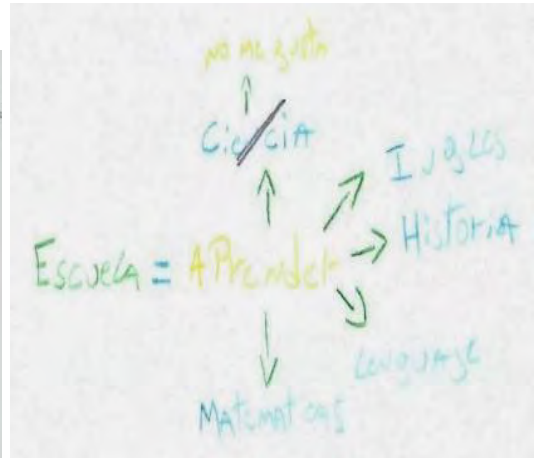 no me gusta
Ciencia
Inglés
Historia
Escuela = APrender
Lenguaje
Matematicas